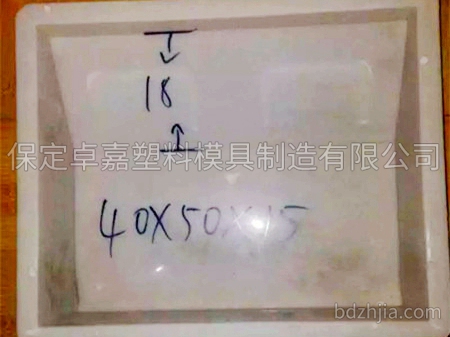 18
保定卓嘉塑料模具制造有限公司
40X50X15
bdzhjia.com